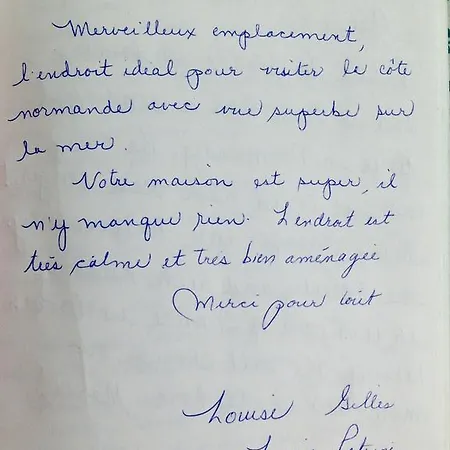 Merveilleux emplacement,
l'endroit idéal pour visiter le côte
normande avec vue superbe sur
la mer.
Votre maison est super, il
n'y manque rien. L'endroit est
très calme et très bien aménagée
Merci pour tout
Louise Gilles